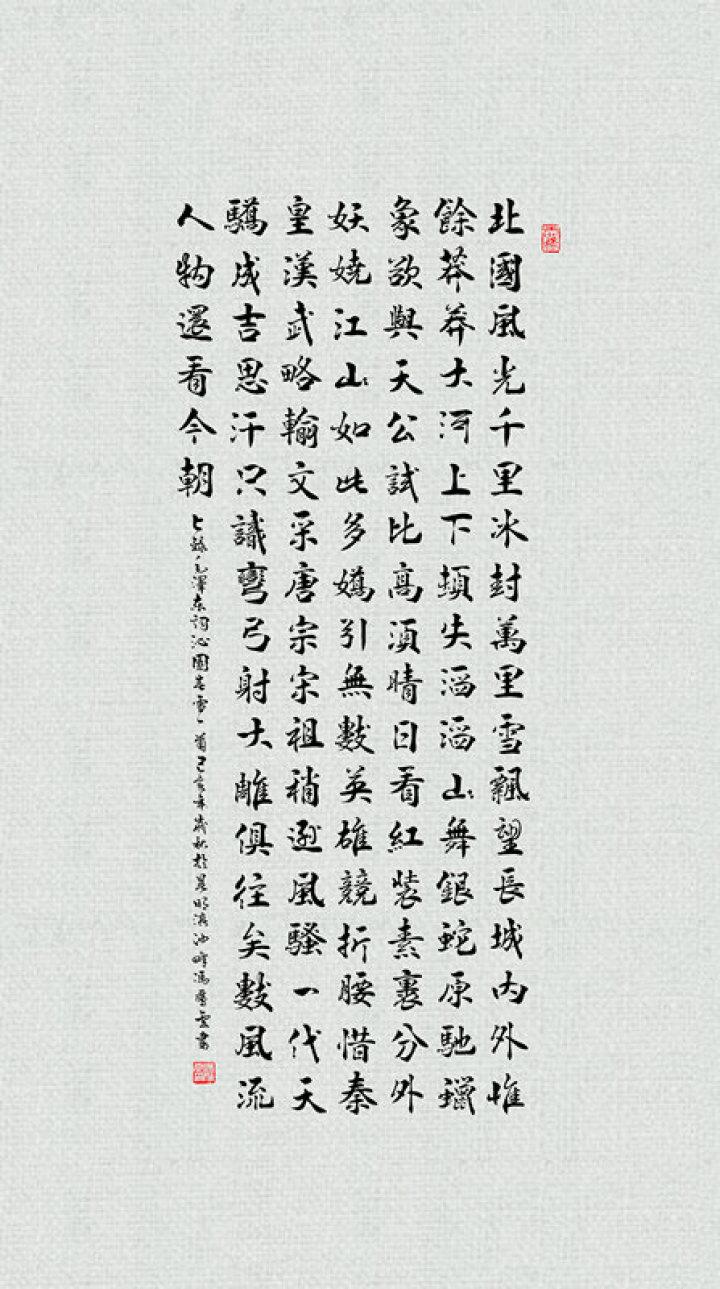 北國風光千里冰封萬里雪飄望長城内外惟
餘莽莽大河上下頓失滔滔山舞銀蛇原馳蠟
象欲與天公試比高須晴日看紅裝素裹分外
妖嬈江山如此多嬌引無數英雄競折腰惜秦
皇漢武略輸文采唐宗宋祖稍遜風騷一代天
驕成吉思汗只識彎弓射大雕俱往矣數風流
人物還看今朝
上錄毛澤東詞沁園春雪一首己亥年歲秋於昆明滇池畔馮雲書